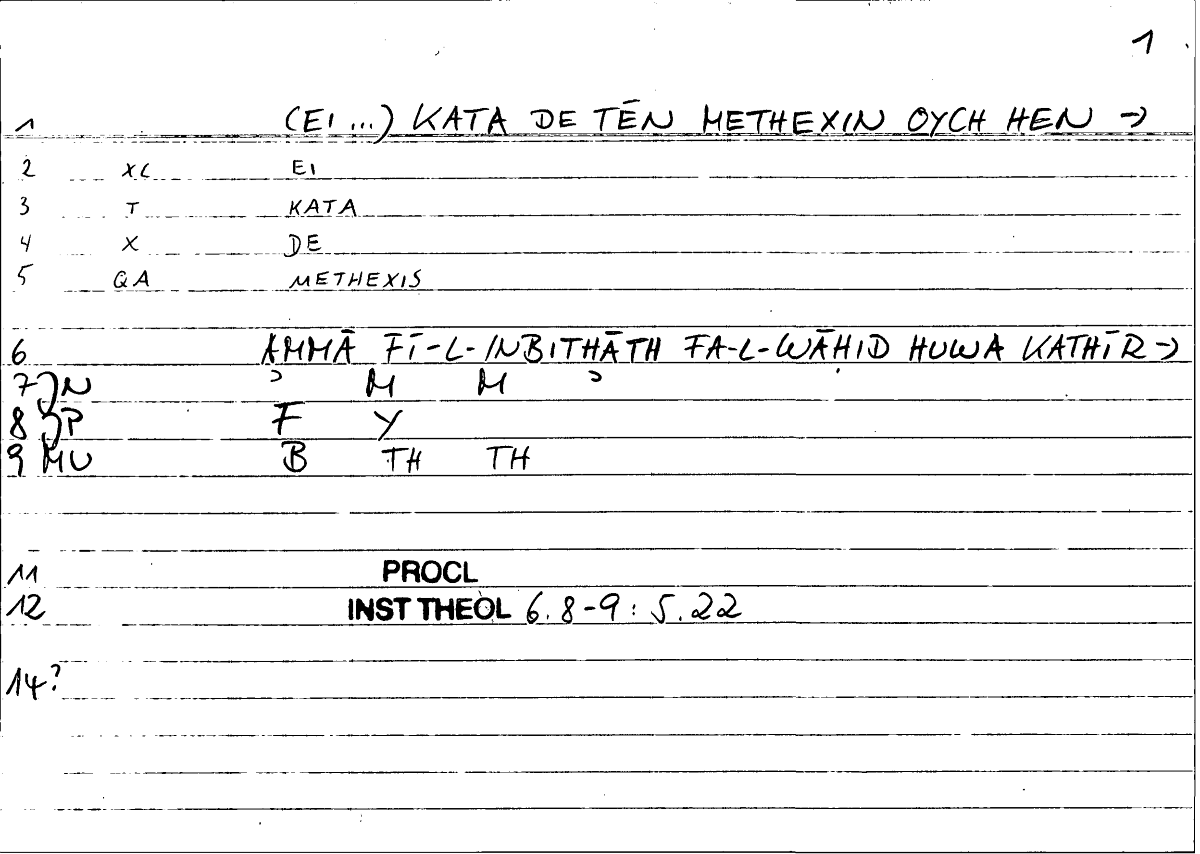 1
1 (EI ...) KATA DE TĒN METHEXIN OYCH HEN →
2 XL EI
3 T KATA
4 X DE
5 QA METHEXIS
6 AMMĀ FĪ-L-INBITHĀTH FA-L-WĀḤID HUWA KATHĪR →
7 N ʾ M M ʾ
8 P F Y
9 MU B TH TH
11 PROCL
12 INST THEOL 6.8-9: 5.22
14?